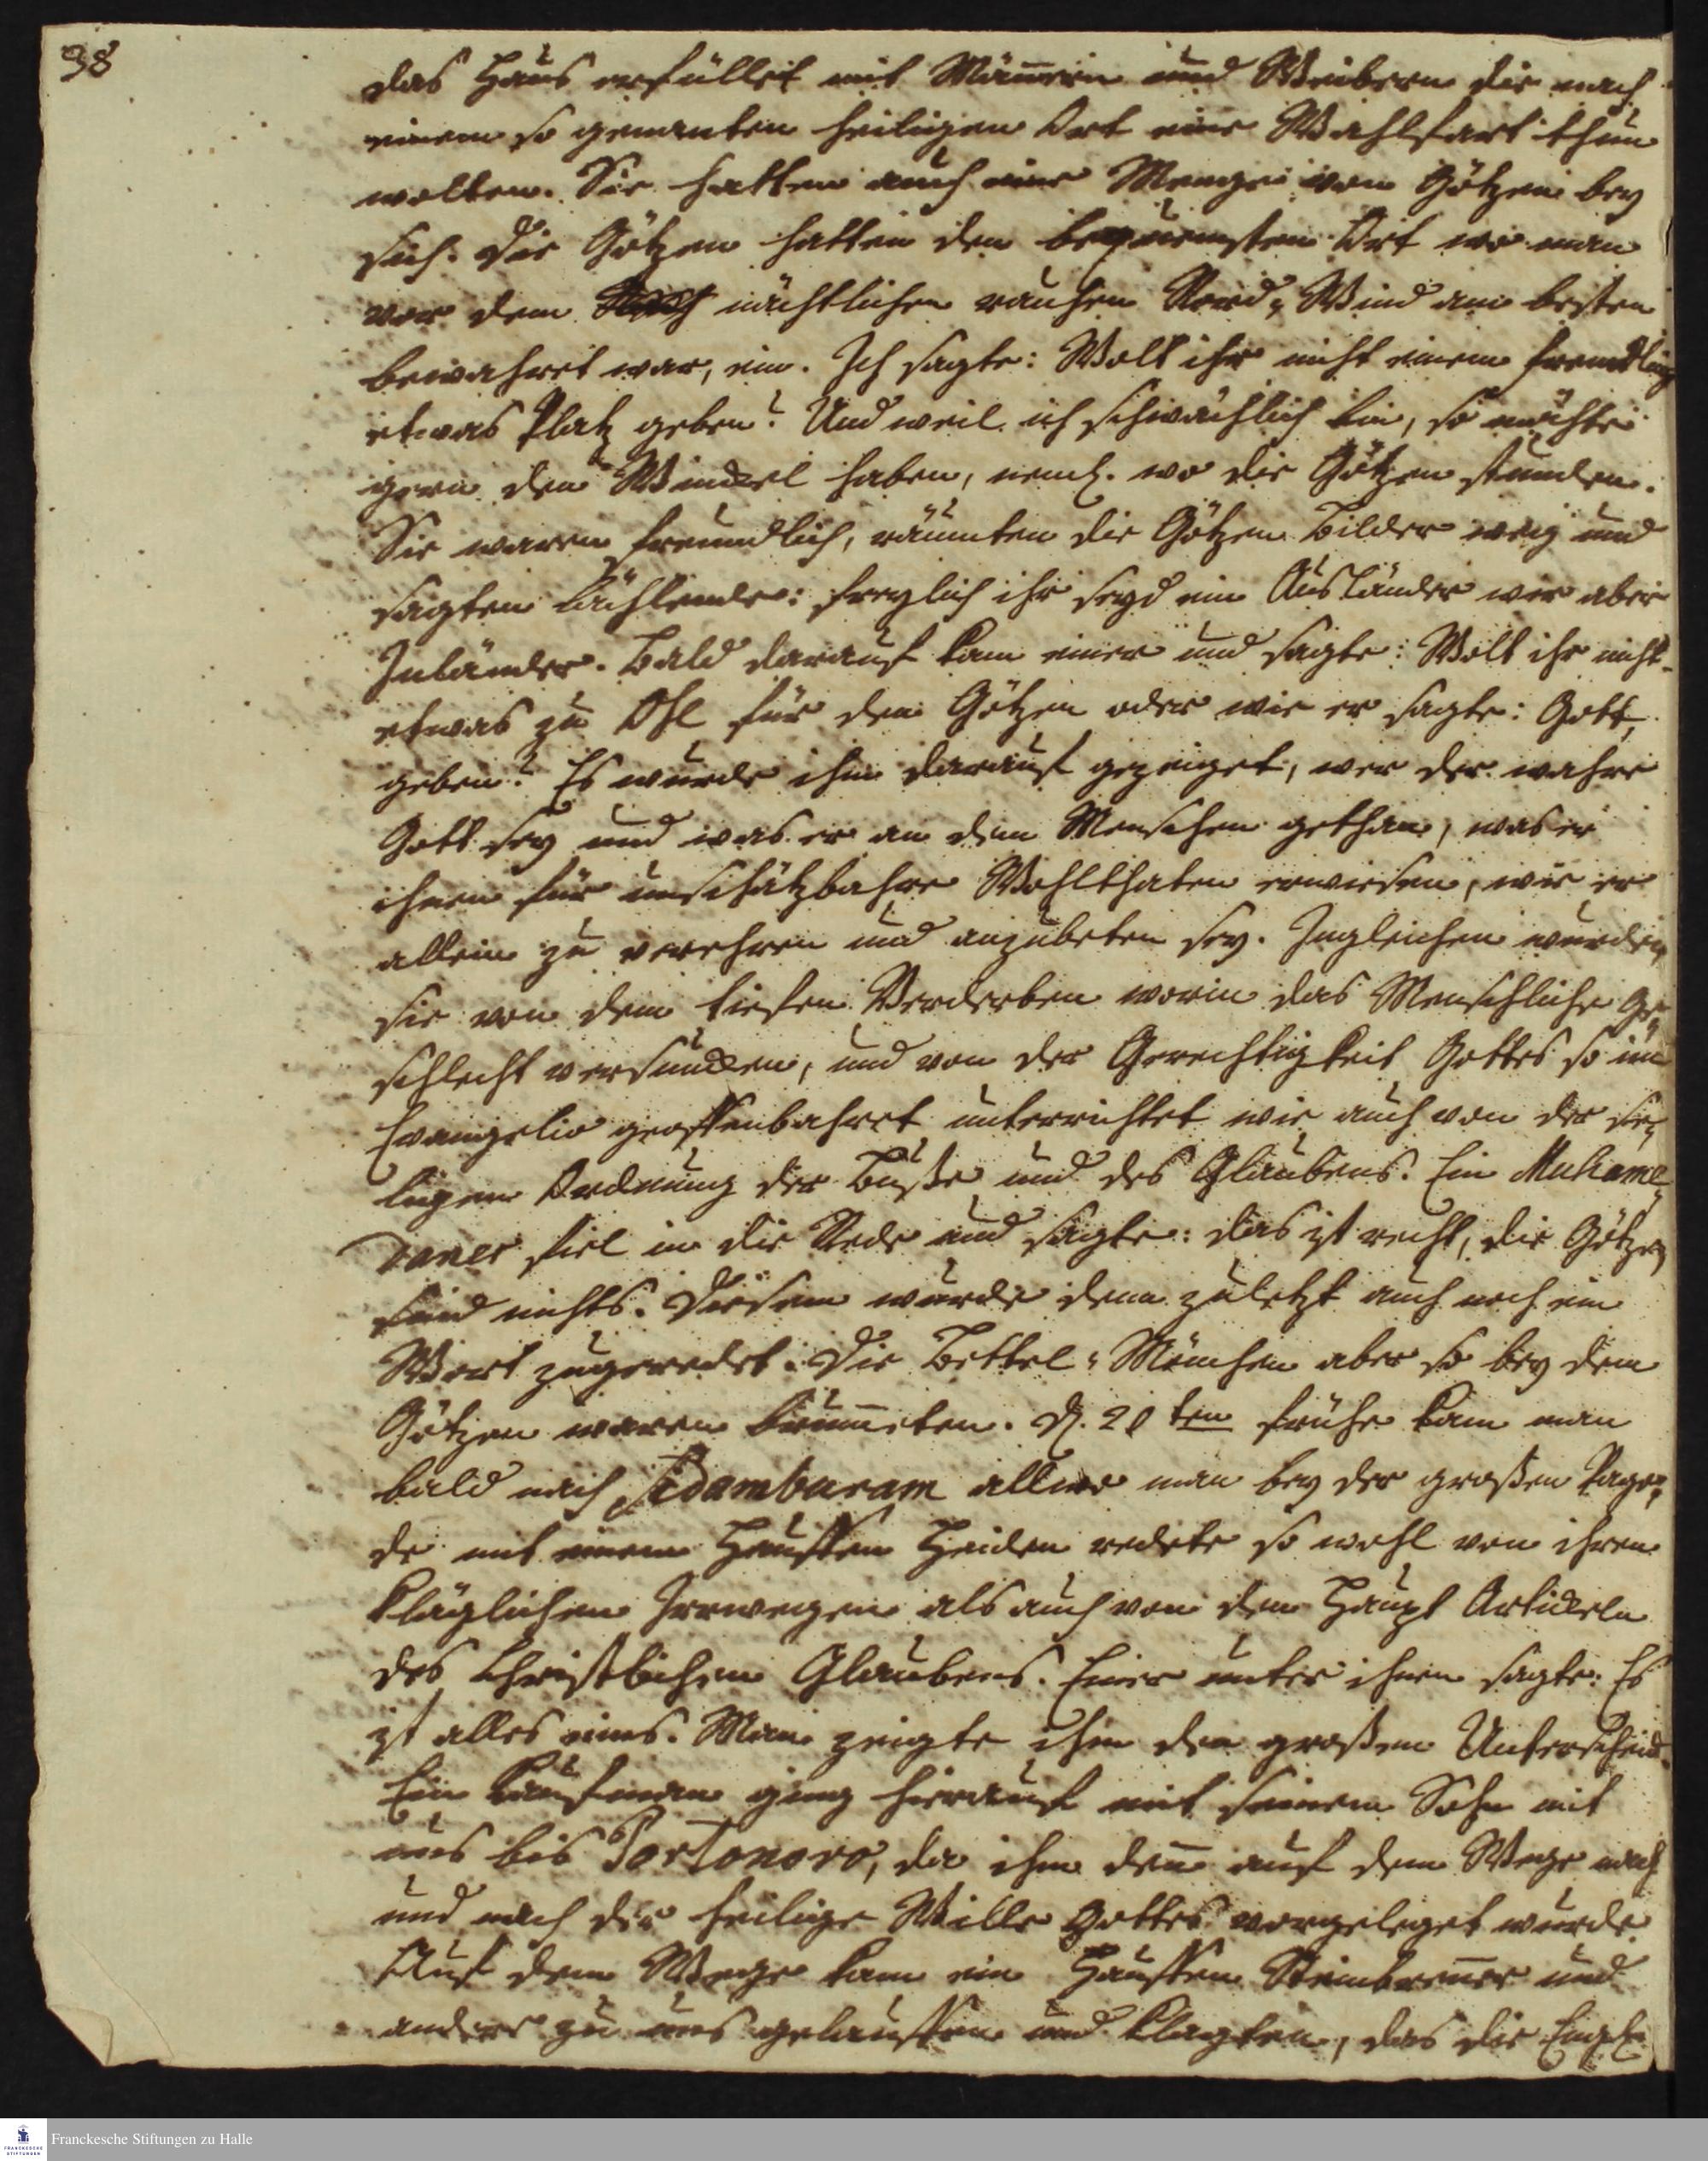 38
das Haus erfüllet mit Mäñern und Weibern die nach
einem so genanten heiligen Ort eine Wahlfart thun
wolten. Sie hatten auch eine Menge von Götzen bey
sich. Die Götzen hatten den bequemsten Ort wo man
vor dem nächtlichen rauhen Nord-Wind am besten
bewahret war, ein. Ich sagte: Wolt ihr nicht einem fremdling
etwas Platz geben? Und weil ich schwächlich bin, so möchte
gern den Winckel haben, neml. wo die Götzen stunden.
Sie waren freundlich, räumten die Götzen Bilder weg und
sagten lächlende: freylich ihr seyd ein Ausländer wir aber
Inländer. Bald darauf kam einer und sagte: Wolt ihr nicht
etwas zu Öhl für den Götzen oder wie er sagte: Gott,
geben? Es wurde ihm darauf gezeiget, wer der wahre
Gott sey und was er an dem Menschen gethan, was er
ihnen für unschätzbahre Wohlthaten erwiesen, wie er
allein zu verehren und anzubeten sey. Ingleichen wurden
sie von dem tiefen Verderben worin das Menschliche Ge-
schlecht versuncken, und von der Gerechtigkeit Gottes so im
Evangelio geoffenbahret unterrichtet wie auch von der see-
ligen Ordnung der Buße und des Glaubens. Ein Muhame-
daner fiel in die Rede und sagte: das ist recht, die Götzen
sind nichts. Diesem wurde denn zuletzt auch noch ein
Wort zugeredet. Die Bettel-Mönchen aber so bey dem
Götzen waren brum̄eten. D. 20ten frühe kam man
bald nach Sidamburam allwo man bey der großen Pago-
de mit einem Hauffen Heiden redete so wohl von ihren
kläglichen Irrwegen als auch von den Haupt Artickeln
des Christlichen Glaubens. Einer unter ihnen sagte: Es
ist alles eins. Man zeigte ihm den großen Unterscheid.
Ein Kaufman ging hierauf mit seinem Sohn mit
uns bis Portonovo, da ihm deñ auf dem Wege nach
und nach der heilige Wille Gottes vorgeleget wurde.
Auf dem Wege kam ein Hauffen und
andere zu uns gelauffen und klagten, das die Engl.
Franckesche Stiftungen zu Halle
FRANCKESCHE STIFTUNGEN